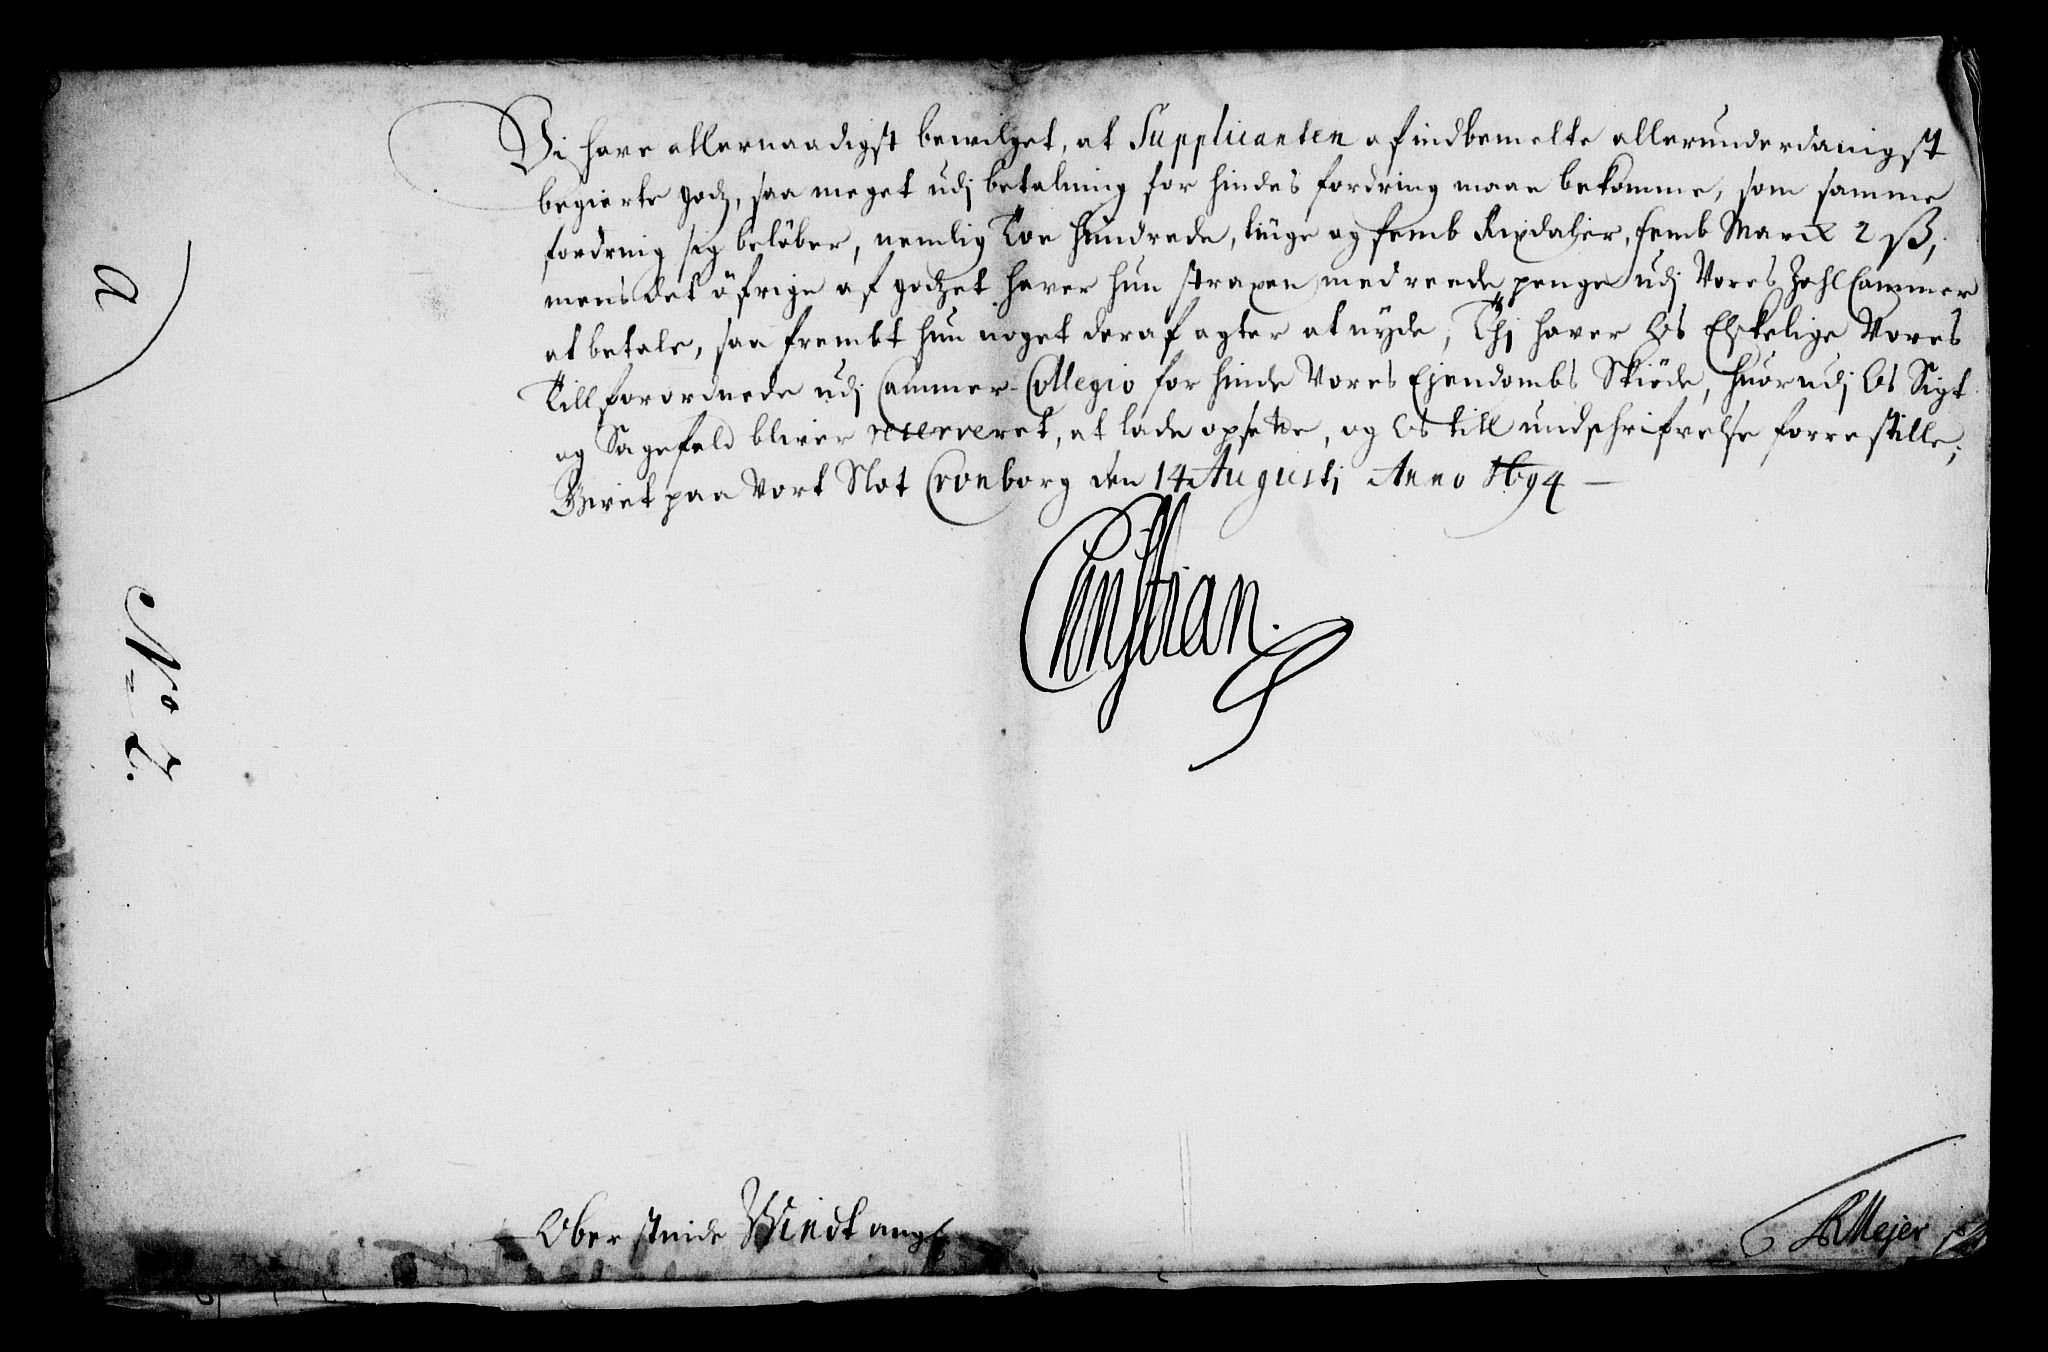 Vi have allernaadigst bewilget, at Supplicanten af indbemelte allerunderdanigst
begierte godz, saa meget udj betalning for hindes fordring maae bekomme, som samme
fordring sig belöber, nemlig Toe Hundrede, tiuge og femb Rixdaler, femb Marck 2 ß,
mens det öfrige af godzet haver hun straxen med reede penge udj Vores Zahl Cammer
at betale, saa frembt hun noget deraf agter at nyde, Thj haver Os Elskelige Vores
Tillforordnede udj Cammer-Collegio for hinde Vores Ejendombs Skiöde, huorudj Os Sigt
og Sagefald bliver reserveret, at lade opsette, og Os till undschrifvelse forrestille;
Gifvet paa Vort Slot Cronborg den 14 Augustj Anno 1694
Christian.
a
No 2.
Oberstinde Windt ang:
Mejer